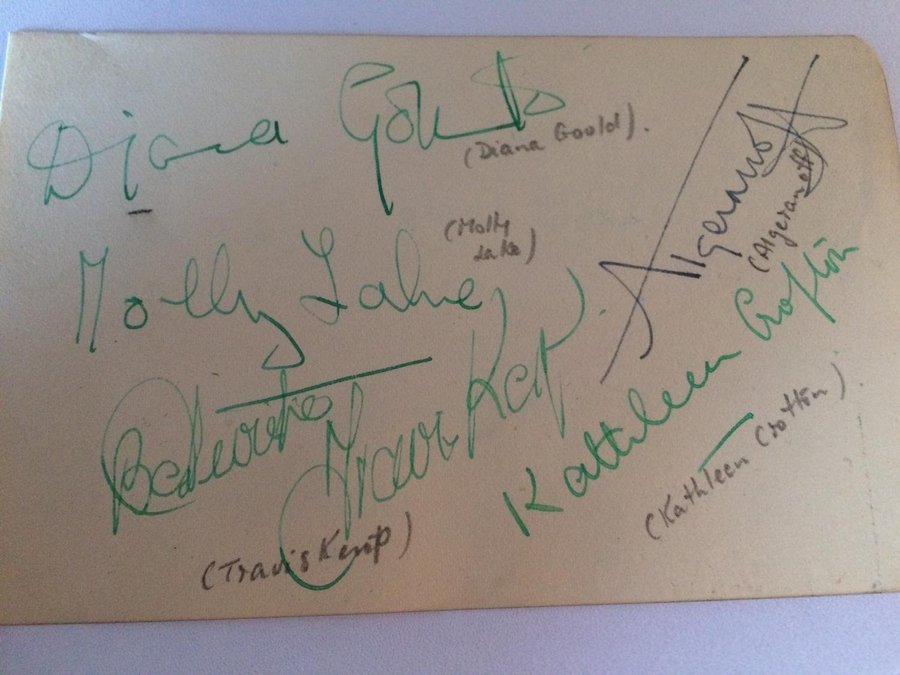 Diana Goold
(Diana Goold).
Algeranoff
(Algeranoff)
Molly Lake
(Molly
Lake)
Travis Kemp
(Travis Kemp)
Kathleen Crofton
(Kathleen Crofton).